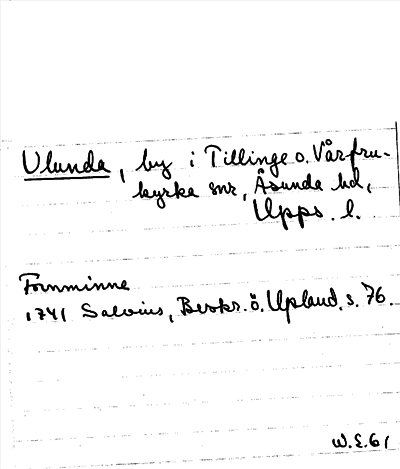 Ulunda, by i Tillinge o. Vårfru-
kyrka snr, Åsunda hd,
Upps. l.
Fornminne
1741 Salvius, Beskr. ö. Upland. s. 76.
W.E.61